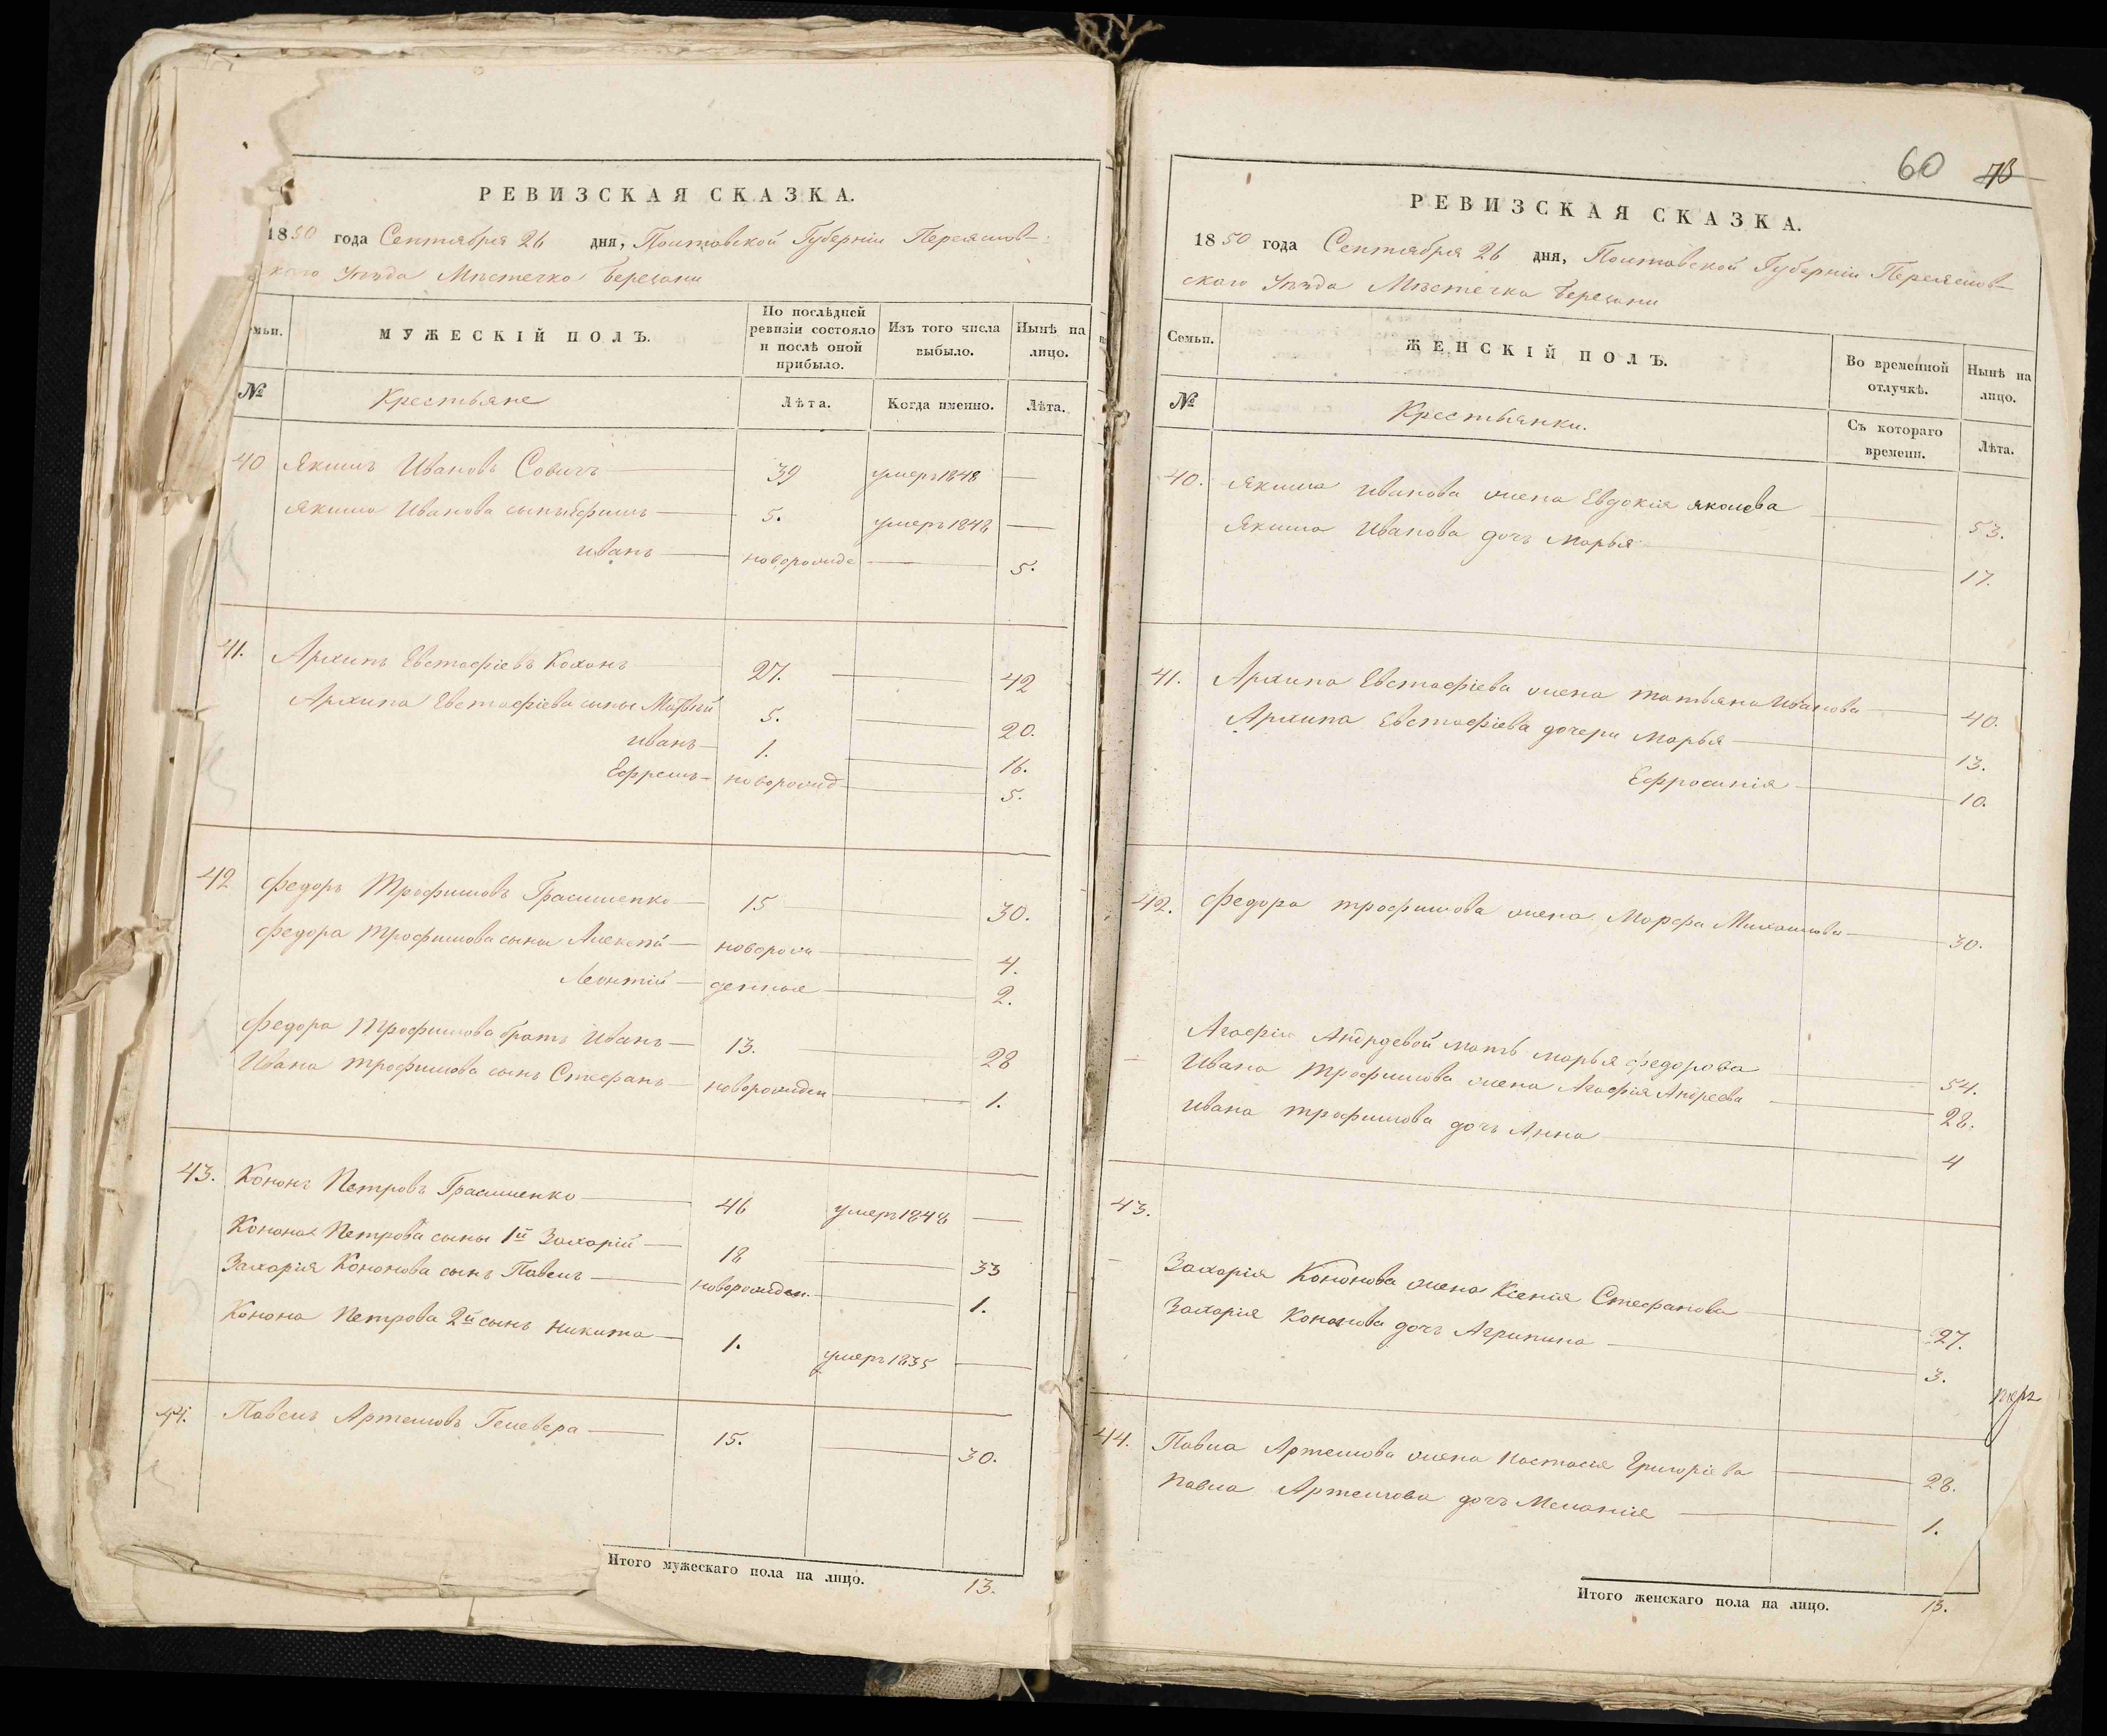 РЕВИЗСКАЯ СКАЗКА.
1850 года Сентября 26 дня, Полтавской Губерніи Переяслов-
скаго Уѣзда Мѣстечка Березани
МУЖЕСКІЙ ПОЛЪ.
По послѣдней ревизіи состояло и послѣ оной прибыло.
Изъ того числа выбыло.
Нынѣ на лицо.
№ Крестьяне Лѣта. Когда именно. Лѣта.
40 Якимъ Ивановъ Савичъ 39 умеръ 1848
Якима Иванова сыны Ефимъ 5. умеръ 1848
Иванъ новорожде 5.
41. Архипъ Евстафіевъ Коханъ 27. 42
Архипа Евстафіева сыны Матвѣй 5. 20.
Иванъ 1. 16.
Ефремъ новорожд 5.
42 Федоръ Трофимовъ Грасименко 15 30.
Федора Трофимова сыны Алексѣй новорож 4.
Леонтій денные 2.
Федора Трофимова братъ Иванъ 13. 28
Ивана Трофимова сынъ Стефанъ новорожден 1.
43. Кононъ Петровъ Грасименко 46 умеръ 1848
Конона Петрова сыны 1й Захарій 18 33
Захарія Кононова сынъ Павелъ новорожден. 1.
Конона Петрова 2й сынъ Никита 1. умеръ 1835
44. Павелъ Артемовъ Гелевера 15. 30.
Итого мужескаго пола на лицо. 13.
60 73
РЕВИЗСКАЯ СКАЗКА.
1850 года Сентября 26 дня, Полтавской Губерніи Переяслов-
скаго Уѣзда Мѣстечка Березани
Семьи. ЖЕНСКІЙ ПОЛЪ.
Во временной отлучкѣ.
Нынѣ на лицо.
№ Крестьянки. Съ котораго времени. Лѣта.
40. Якима Иванова жена Евдокія Яковлева 53.
Якима Иванова дочь Марья 17.
41. Архипа Евстафіева жена Татьяна Иванова 40.
Архипа Евстафіева дочери Марья 13.
Ефросинія 10.
42. Федора Трофимова жена Марфа Михайлова 30.
Агафіи Андреевой мать Марья Федорова 54.
Ивана Трофимова жена Агафія Андреева 28.
Ивана Трофимова дочь Анна 4
43.
Захарія Кононова жена Ксенія Стефанова 27.
Захарія Кононова дочь Агрипина 3.
44. Павла Артемова жена Настасія Григоріева 28.
Павла Артемова дочь Меланія 1.
Итого женскаго пола на лицо. 13.